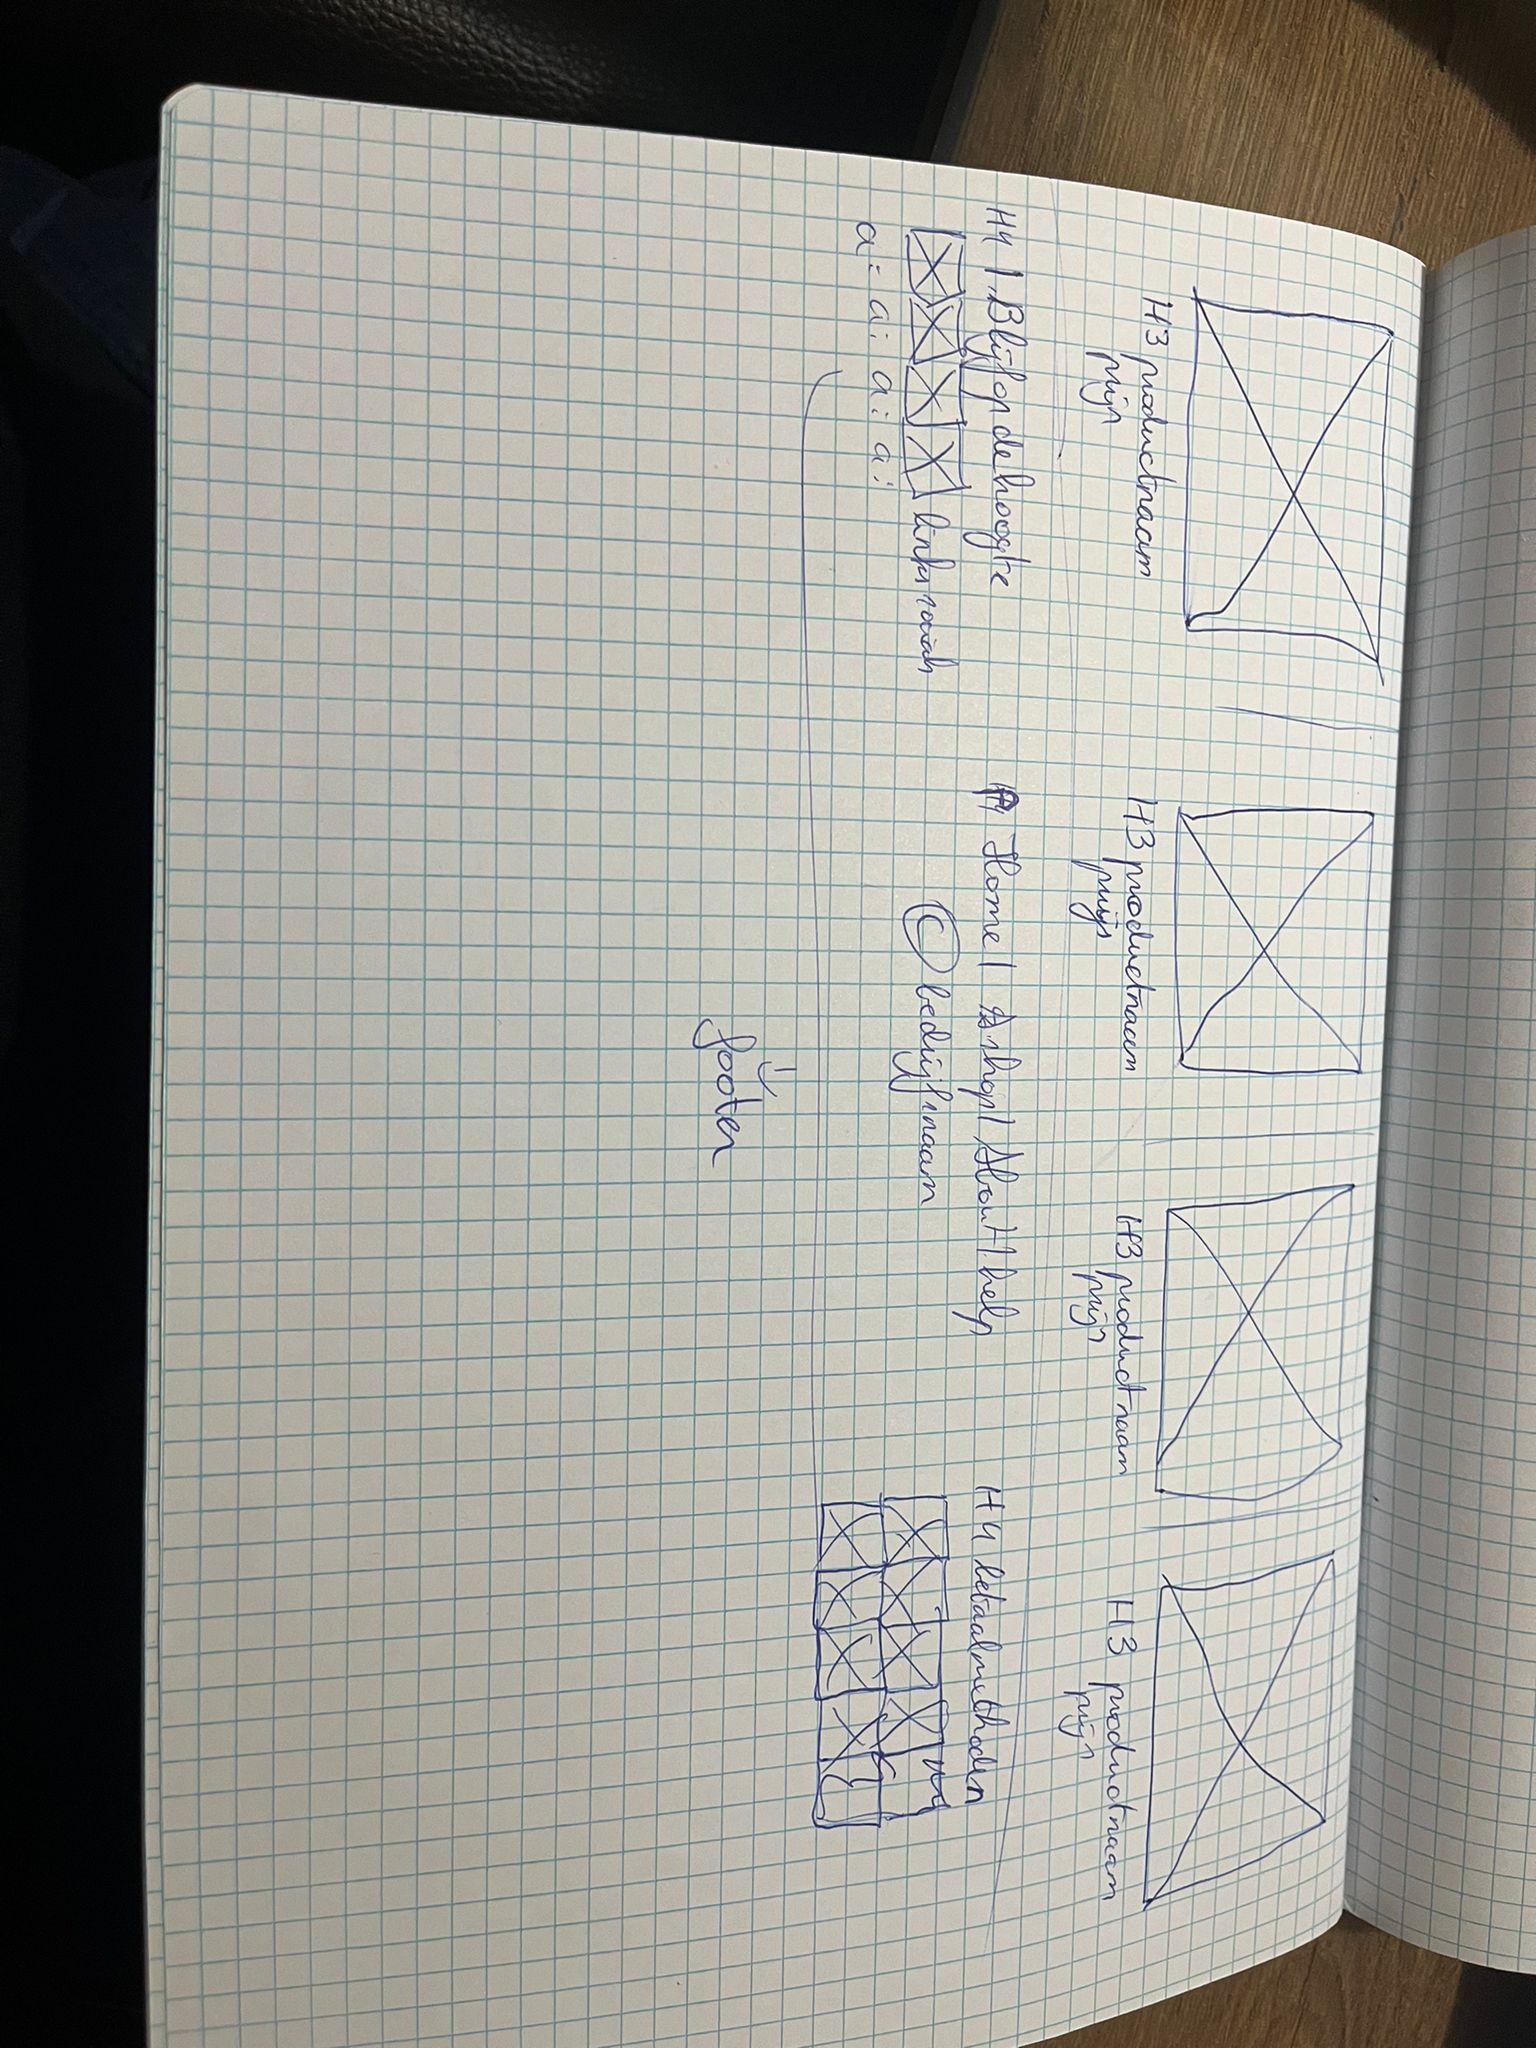 H3 productnaam
prijs
H3 productnaam
prijs
H3 productnaam
prijs
H3 productnaam
prijs
H4 1. Blijf op de hoogte
links socials
a: a: a: a:
Home | shop | About | help
© bedrijfsnaam
H4 betaalmethoden
footer